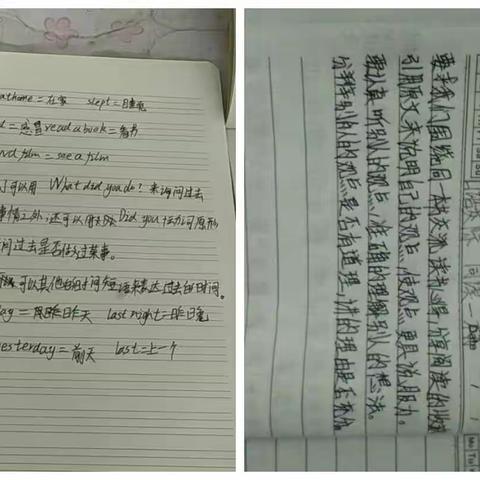 athome=在家 slept=睡觉
d=感冒 read a book=看书
nd film=see a film
们可以用 What did you do? 来询问过去
事情之外,还可以用 Did you+动词原形
问过去是否做过某事。
可以其他的时间短语来表达过去的时间。
day=昨天 last night=昨日晚
yesterday=前天 last=上一个
要求我们围绕同一本书交流读书心得,分享阅读的收
引用原文来说明自己的观点,使观点更具说服力。
要认真听别人的观点,准确的理解别人的想法。
别人的观点是否有道理,讲的理由是否充分。
Date